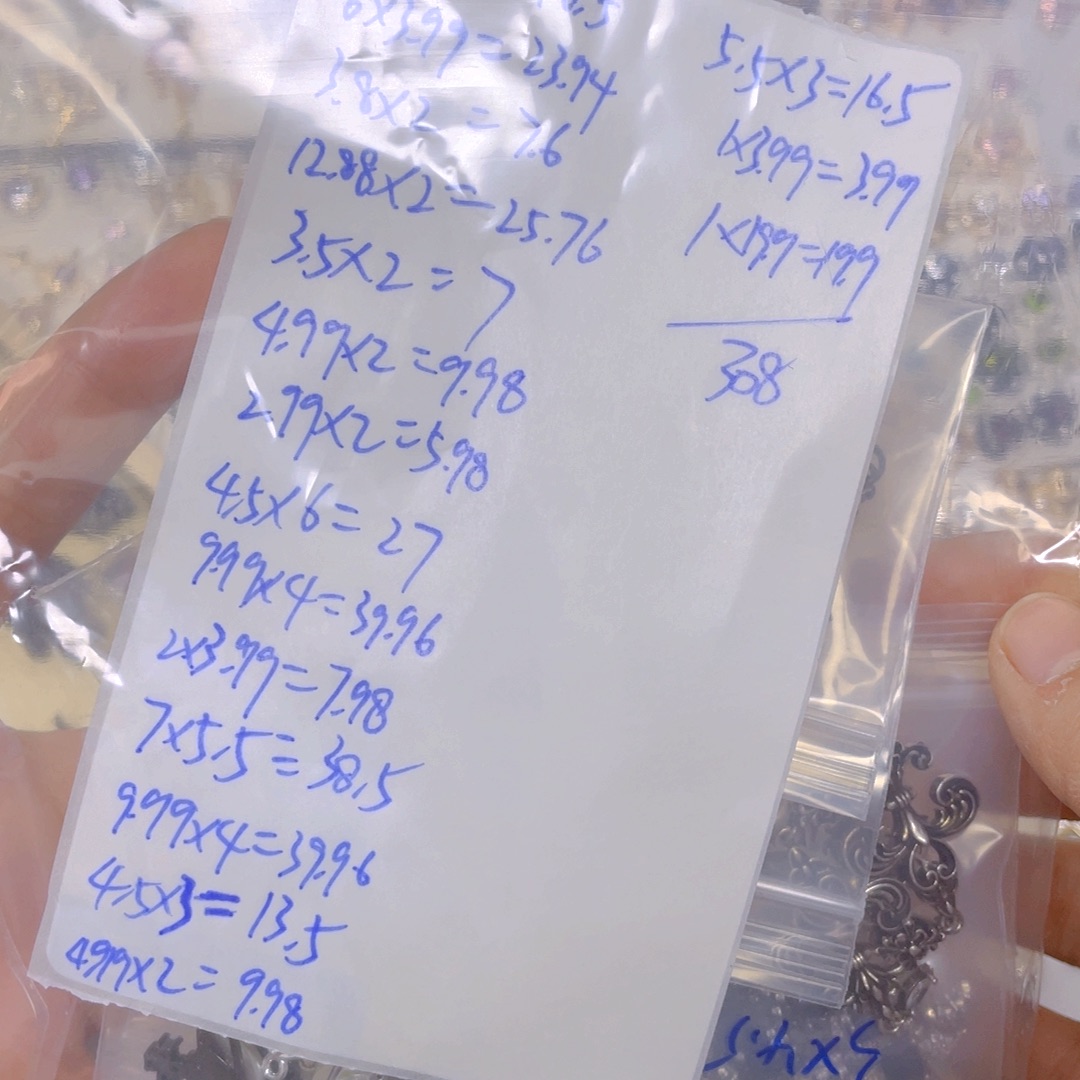 6×3.99=23.94
3.8×2=7.6
12.88×2=25.76
3.5×2=7
4.99×2=9.98
2.99×2=5.98
4.5×6=27
9.99×4=39.96
2×3.99=7.98
7×5.5=38.5
9.99×4=39.96
4.5×3=13.5
4.99×2=9.98
5.5×3=16.5
1×3.99=3.99
1×19.9=19.9
308
5×4.5